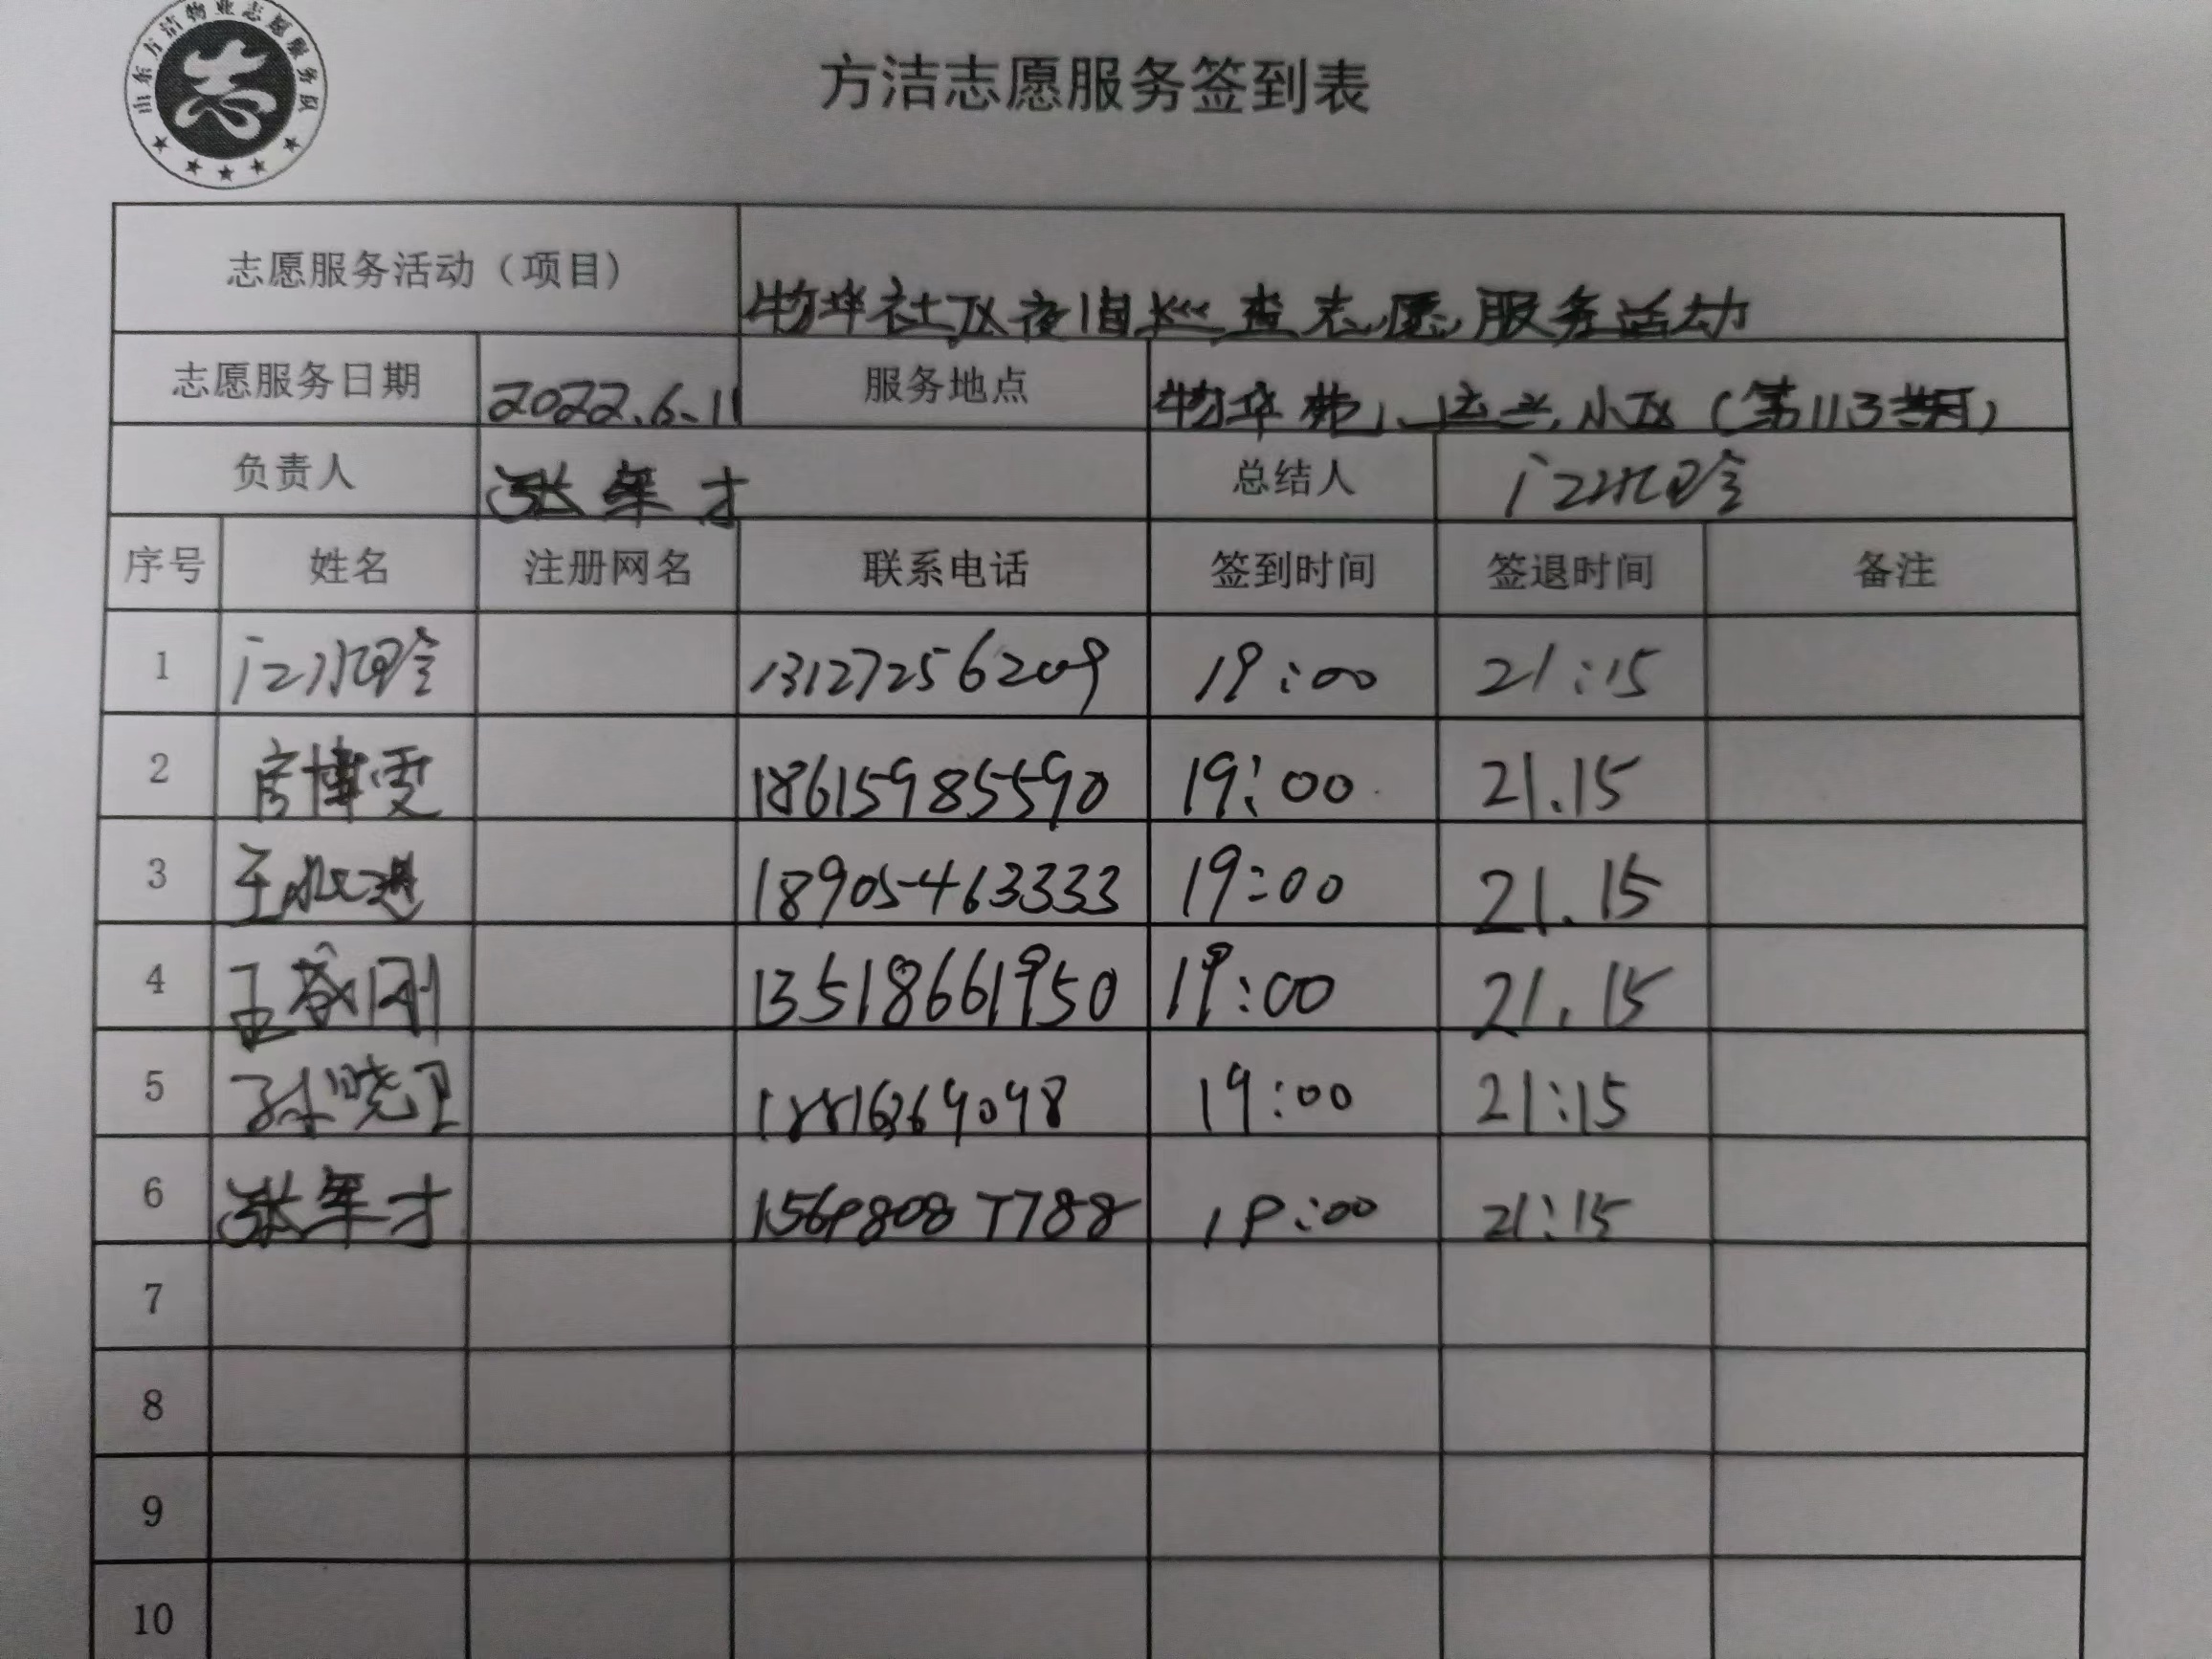 山东方洁物业志愿服务队
方洁志愿服务签到表
志愿服务活动（项目） 物华社区夜间巡查志愿服务活动
志愿服务日期 2022.6.11 服务地点 物华苑、运兴小区（第113期）
负责人 张军才 总结人
序号 姓名 注册网名 联系电话 签到时间 签退时间 备注
1 13127256209 19:00 21:15
2 房博雯 18615985590 19:00 21.15
3 王 进 18905463333 19:00 21.15
4 王 刚 13518661950 19:00 21.15
5 孙晓卫 19:00 21:15
6 张军才 19:00 21:15
7
8
9
10